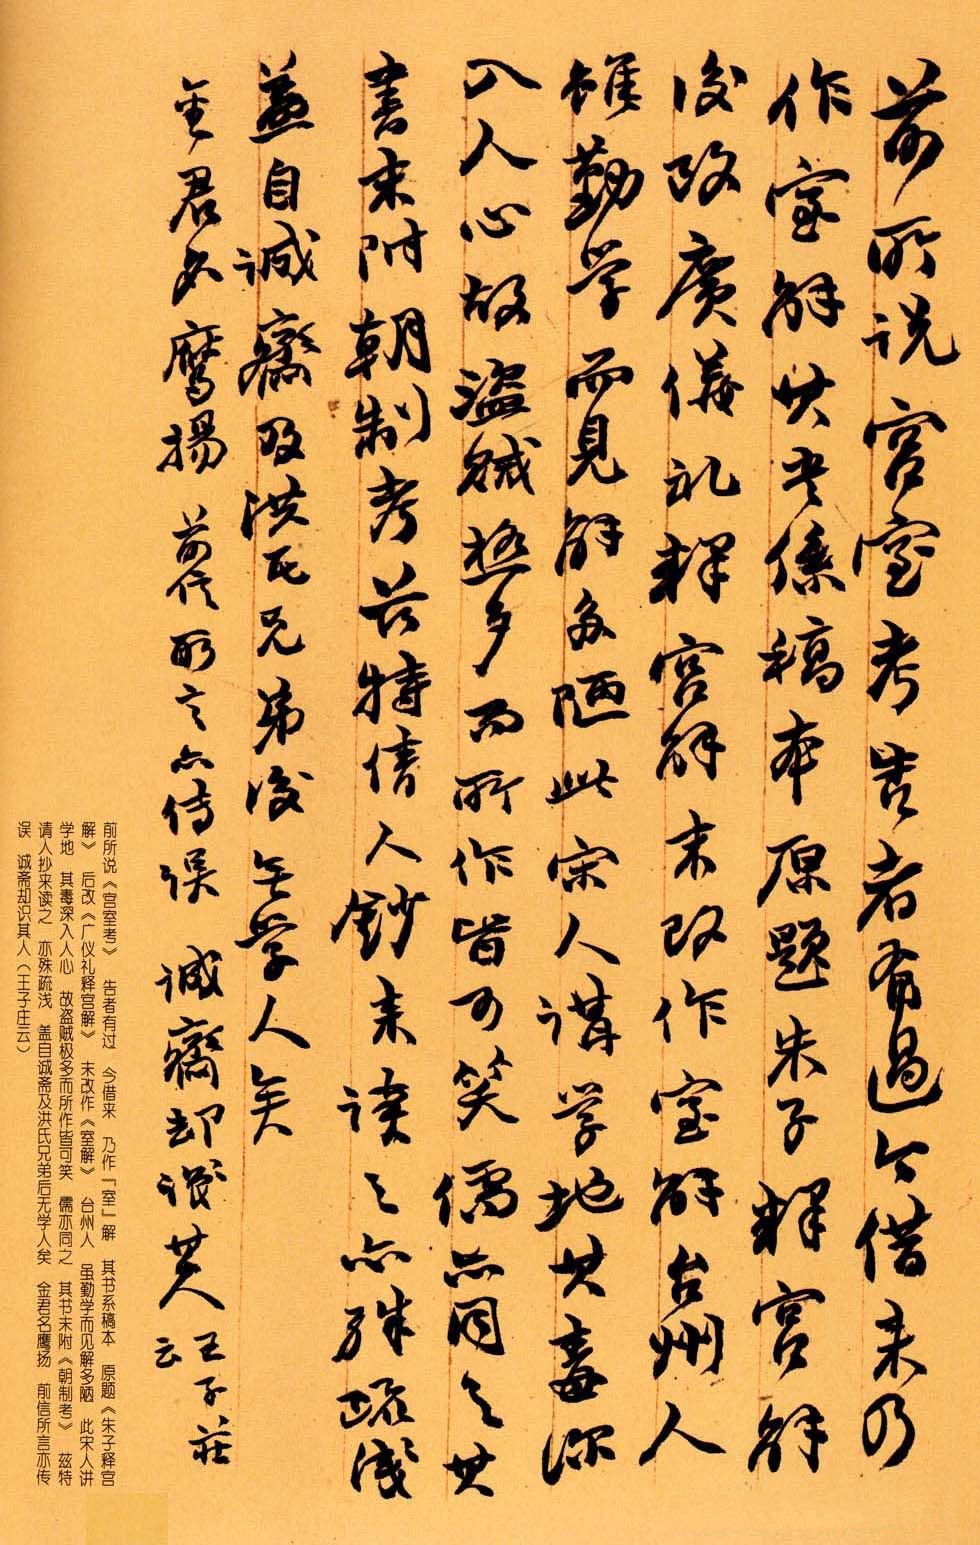 前所说宫室考告者有过今借来乃
作室解其书系稿本原题朱子释宫解
後改廣儀礼释宫解末改作室解台州人
雖勤学而見解多陋此宋人講学地其毒深
入人心故盗贼极多而所作皆可笑儒亦同之其
書末附朝制考兹特倩人鈔来读之亦殊疏浅
蓋自诚齋及洪氏兄弟後無学人矣
金君名鹰揚 前信所言亦传误 诚齋却识其人 王子莊云
前所说《宫室考》 告者有过 今借来 乃作『室』解 其书系稿本 原题《朱子释宫
解》 后改《广仪礼释宫解》 末改作《室解》 台州人 虽勤学而见解多陋 此宋人讲
学地 其毒深入人心 故盗贼极多而所作皆可笑 儒亦同之 其书末附《朝制考》 兹特
请人抄来读之 亦殊疏浅 盖自诚斋及洪氏兄弟后无学人矣 金君名鹰扬 前信所言亦传
误 诚斋却识其人（王子庄云）